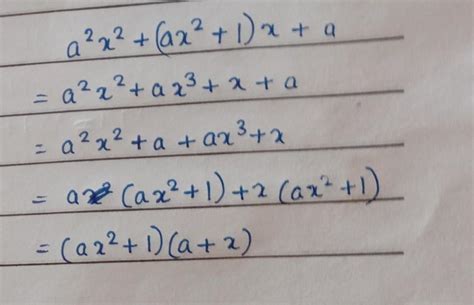 a²x² + (ax² + 1)x + a
= a²x² + ax³ + x + a
= a²x² + a + ax³ + x
= a (ax² + 1) + x (ax² + 1)
= (ax² + 1)(a + x)